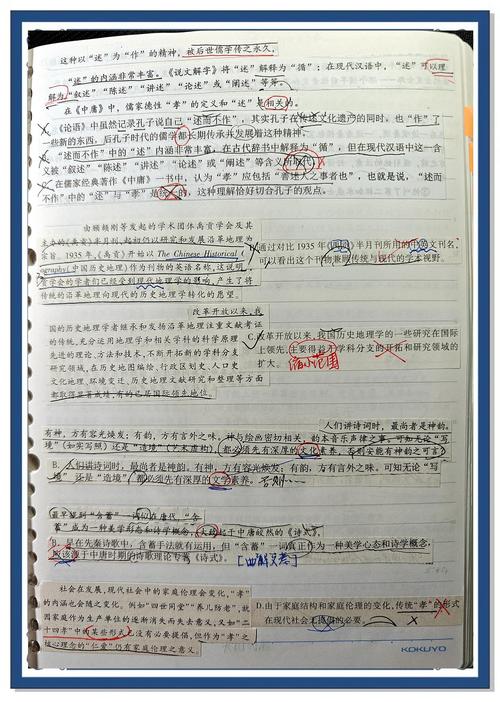 这种以“述”为“作”的精神，被后世儒学传之永久，
“述”的内涵非常丰富。《说文解字》将“述”解释为“循”；在现代汉语中，“述”可以理
解为“叙述”“陈述”“讲述”“论述”或“阐述”等等。
在《中庸》中，儒家德性“孝”的定义和“述”是相关的。
《论语》中虽然记录孔子说自己“述而不作”，其实孔子在传述文化遗产的同时，也“作”了
一些新的东西，后孔子时代的儒学都长期传承并发展着这种精神。
“述而不作”中的“述”内涵非常丰富，在古代辞书中解释为“循”，但在现代汉语中这一含
义被“叙述”“陈述”“讲述”“论述”或“阐述”等含义所取代。
在儒家经典著作《中庸》一书中，认为“孝”应包括“善述人之事者也”，也就是说，“述
而不作”中的“述”与“孝”是统一的，这种理解恰好切合孔子的观点。
由顾颉刚等发起的学术团体禹贡学会及其
主办的《禹贡》半月刊，起初仍以研究和发展沿革地理为
宗旨。1935年，《禹贡》开始以 The Chinese Historical G
eography(中国历史地理)作为刊物的英语名称，这说明
贡学会的学者们已经受到现代地理学的影响，产生了将
传统的沿革地理向现代的历史地理学转化的愿望。
通过对比1935年《禹贡》半月刊所用的中英文刊名，
可以看出这个刊物兼顾传统与现代的学术视野。
改革开放以来，我
国的历史地理学者继承和发扬沿革地理注重文献考证
的传统，充分运用地理学和相关学科的科学原理
先进的理论、方法和技术，不断开拓新的学科分支
研究领域，在历史地图编绘、行政区划史、人口史
文化地理、环境变迁、历史地理文献研究和整理等方面
都取得显著成绩，有的已居国际领先地位。
C.改革开放以来，我国历史地理学的一些研究在国际
上领先，主要得益于学科分支的开拓和研究领域的
扩大。
缩小范围
人们讲诗词时，最尚者是神韵。
有神，方有容光焕发；有韵，方有言外之味。神与绘画密切相关，韵本音乐声律之事，可知无论“写
境”（如实写照）还是“造境”（艺术虚构），都必须先有深厚的文化素养，否则安能有神韵之可言？
B. 人们讲诗词时，最尚者是神韵。有神，方有容光焕发；有韵，方有言外之味。可知无论“写
境”还是“造境”，都必须先有深厚的文学素养。否则…
最早见到“含蓄”一词似在唐代，“含
蓄”成为一种美学形态和诗学概念，大致起于中唐皎然的《诗式》。
B. 早在先秦诗歌中，含蓄手法就有运用，但“含蓄”一词真正作为一种美学心态和诗学概念，
应该源于中唐时期的诗歌理论专著《诗式》。
[曲解文意]
社会在发展，现代社会中的家庭伦理会变化，“孝”
的内涵也会随之变化。例如“四世同堂”“养儿防老”，就
因家庭作为生产单位的逐渐消失而失去意义，又如“二
十四孝”中的某些形式也没有必要提倡，但作为“孝”之
核心理念的“仁爱”仍有家庭伦理之意义。
D.由于家庭结构和家庭伦理的变化，传统“孝”的形式
在现代社会无提倡的必要。
KOKUYO